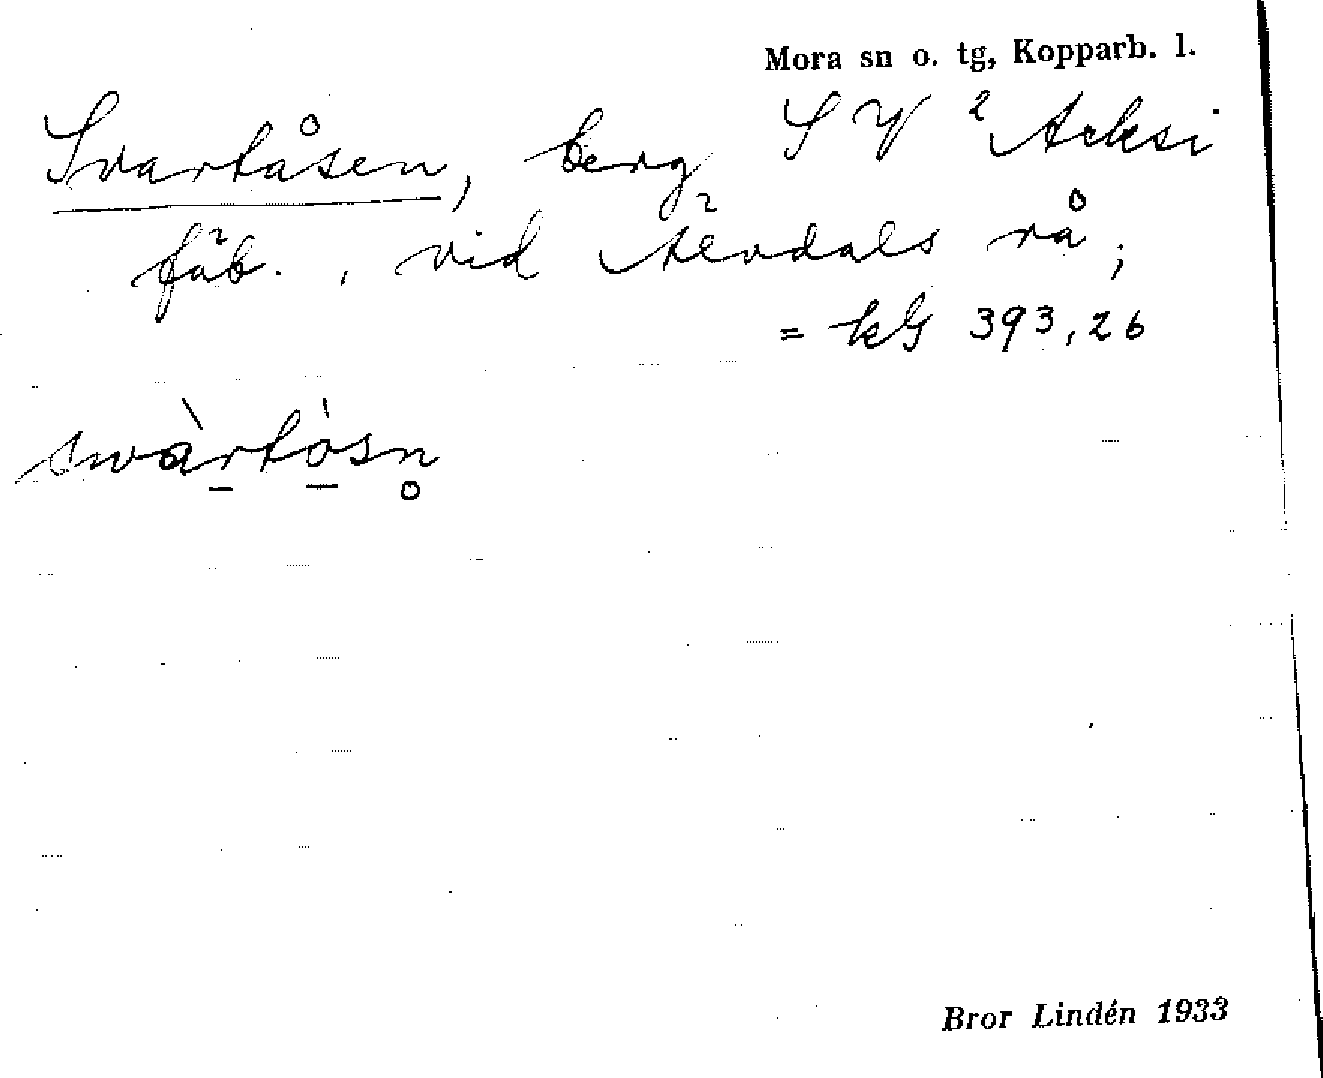 Mora sn o. tg, Kopparb. l.
Svartåsen, berg SV Äcksi
fäb., vid Älvdals rå;
= kG 393,26
swàrtòsn̥
Bror Lindén 1933